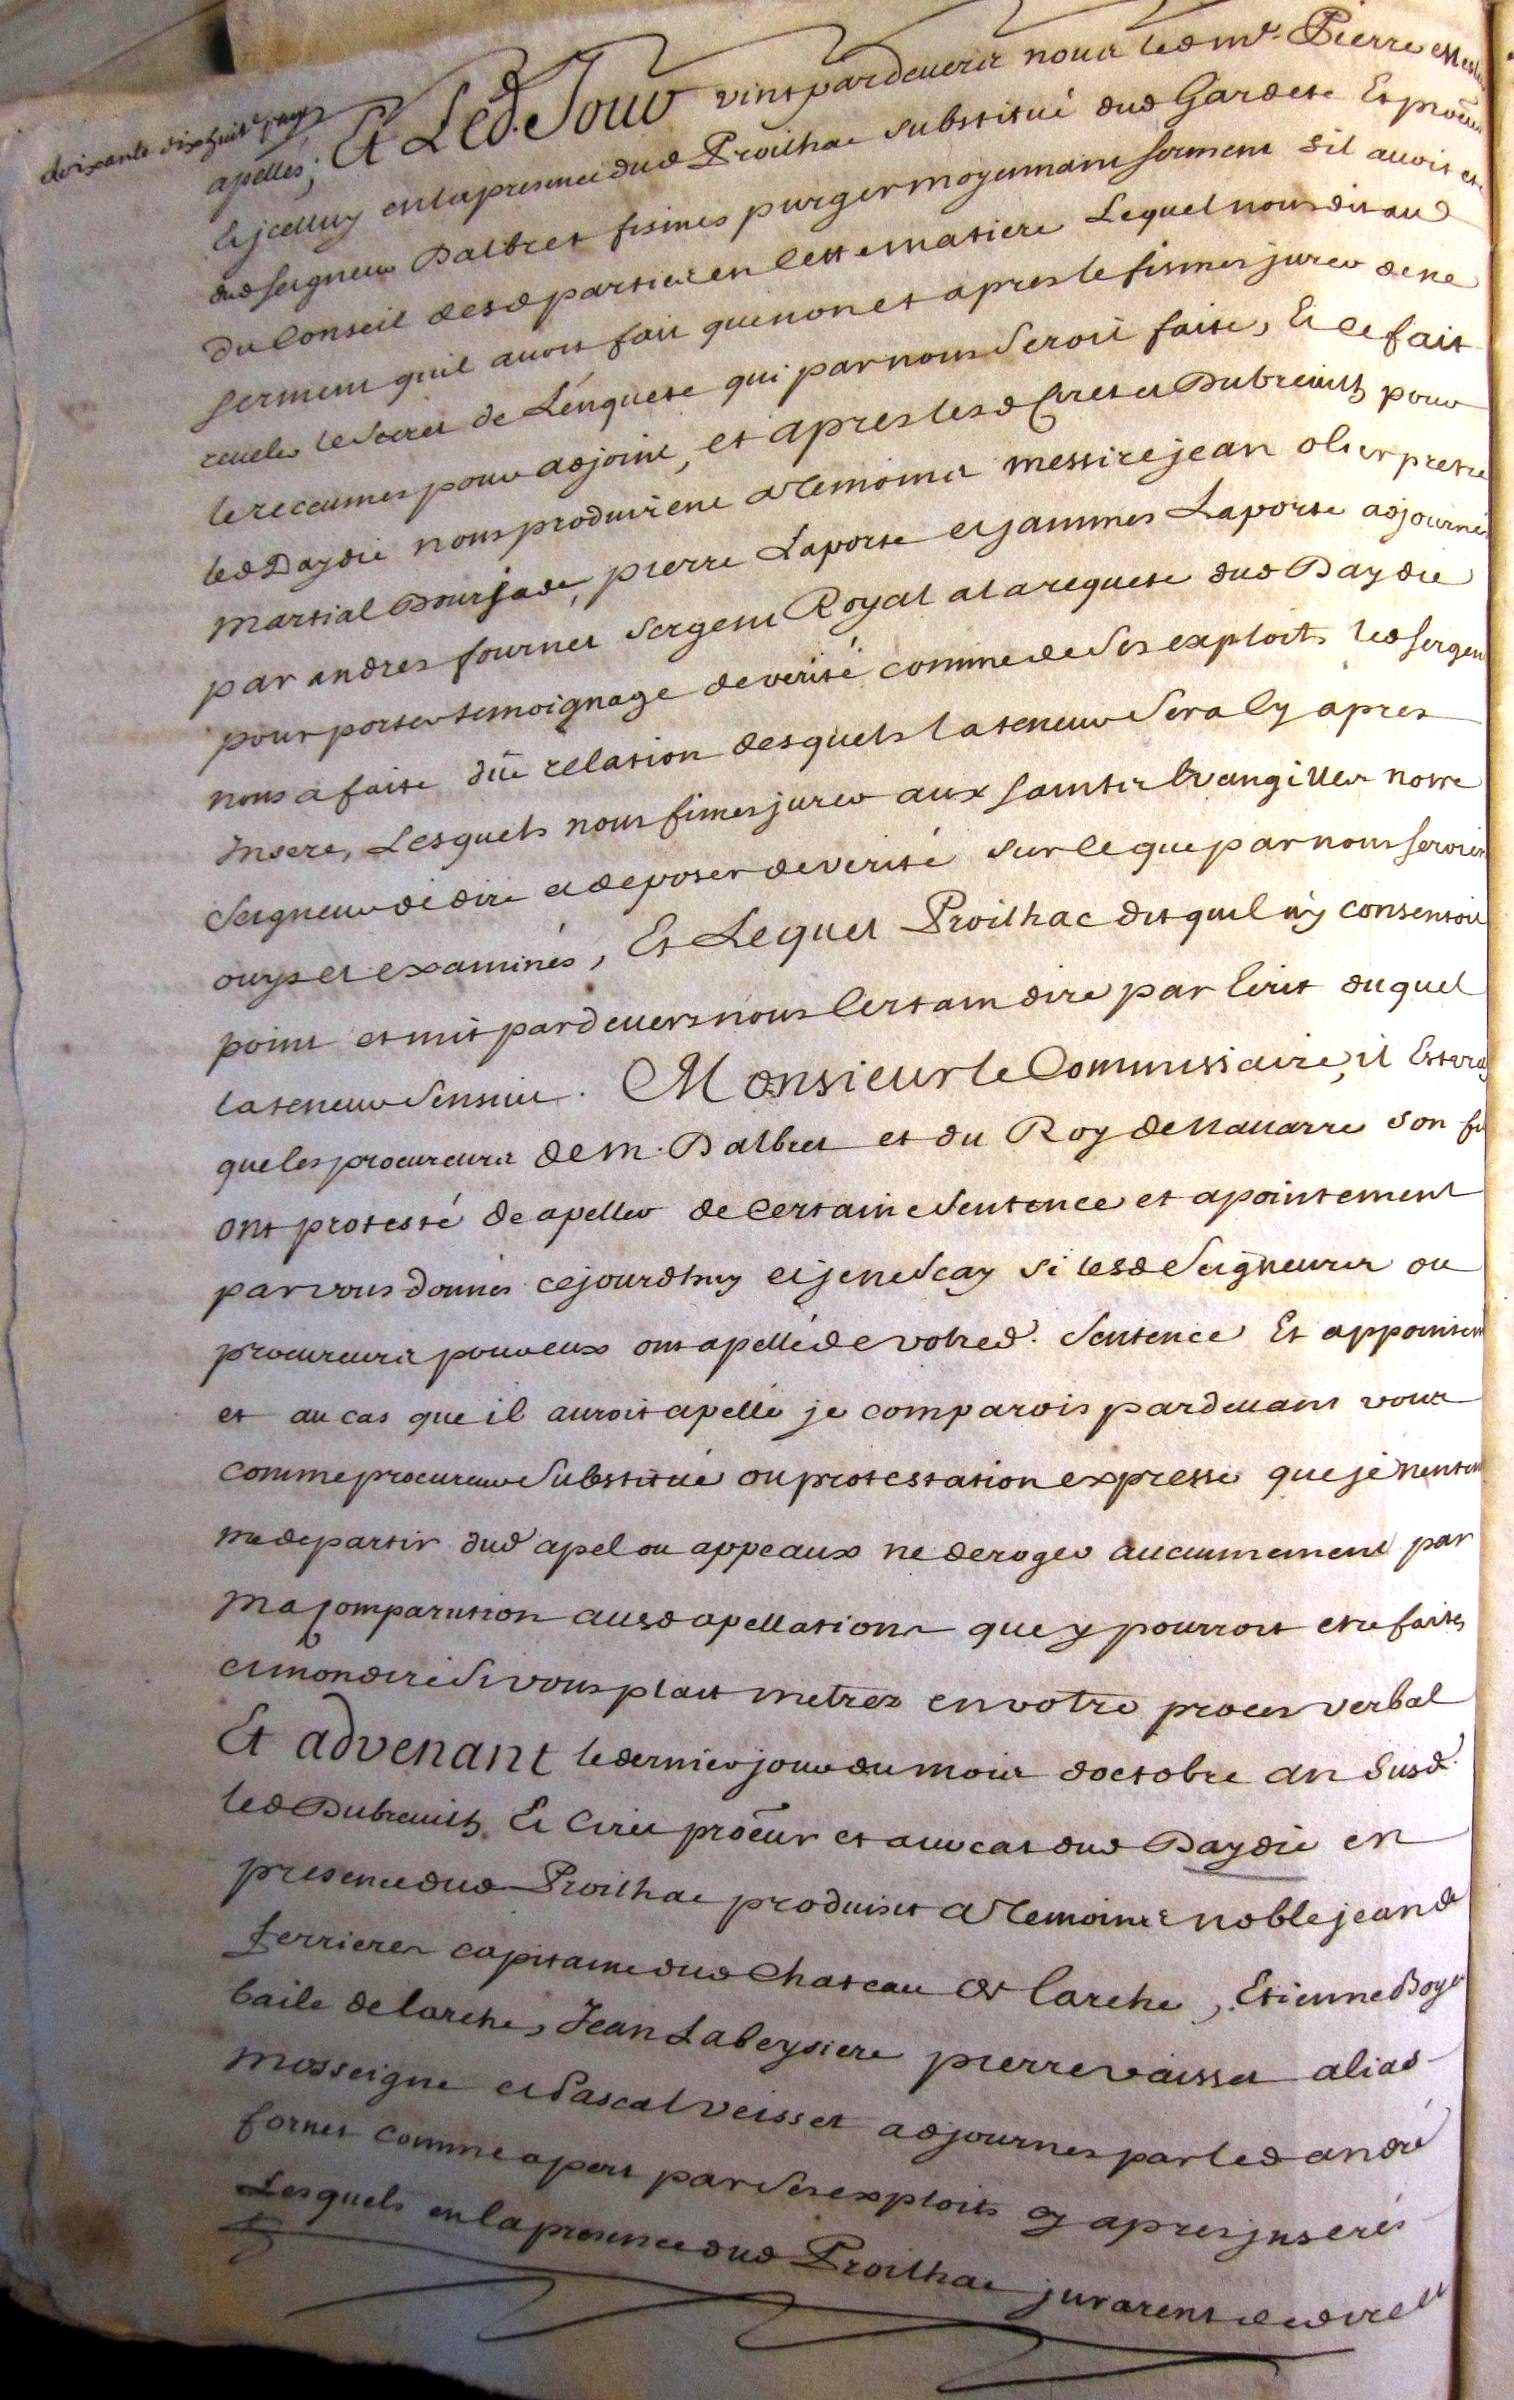 soixante dixhuit.e page
apellés; Et Led. Jour vint pardeuers nous led m.e Pierre
Et jcelluy en la presence dud Proilhac substitué dud Gardete Et procur
dud seigneur Dalbret fismes purger moyennant serment sil auoit eté
du Conseil desd parties en Cette matiere Lequel nous dit aud
serment quil auoit fait que non et apres le fismes jurer de ne
reueler le secret de Lenquete qui par nous seroit faite, Et Ce fait
le receumes pour adjoint, et apres lesd Ciret et Dubreuilh pour
led Daydie nous produirent a Temoins messire jean olier pretre
martial Dourjade, pierre Laporte et jammes Laporte adjournés
par andres fournet sergent Royal a la requete dud Daydie
pour porter temoignage de verité comme de ses exploits led sergent
nous a faite düe relation desquels la teneur sera Cy apres
Insere, Lesquels nous fimes jurer aux saints Evangilles notre
seigneur de dire et deposer de verité sur Ce que par nous seroient
ouys et examinés, Et Lequel Proilhac dit quil n'y consentoit
point et mit pardeuers nous Certain dire par Ecrit duquel
la teneur sensuit. Monsieur le Commissaire, il Est vray
que les procureurs de m. Dalbret et du Roy de Nauarre son fils
ont protesté de apeller de Certaine sentence et apointement
par vous donnés cejourdhuy et je ne scay si lesd seigneurs ou
procureurs pour eux ont apellé de votred. sentence Et appointem
et au cas que il auroit apellé je comparois pardeuant vous
comme procureur substitué ou protestation expresse que je nenten
me departir dud apel ou appeaux ne deroger aucunnement par
ma comparution ausd apellations que y pourroit etre faites
et mon dire si vous plait metrez en votre proces verbal
Et advenant le dernier jour du mois doctobre an susd.
led Dubreuilh Et Ciret procur et auocat dud Daydie en
presence dud Proilhac produisit a Temoins noble jean de
ferrieres capitaine dud Chateau de Larche, Etienne Boyer
baile de larche, Jean Labeysiere pierre vaisset alias
mosseigne et Pascal veisset adjournes par led andré
fornet comme apert par ses exploits cy apres jnserés
Lesquels en la presence dud Proilhac jurarent de dire et